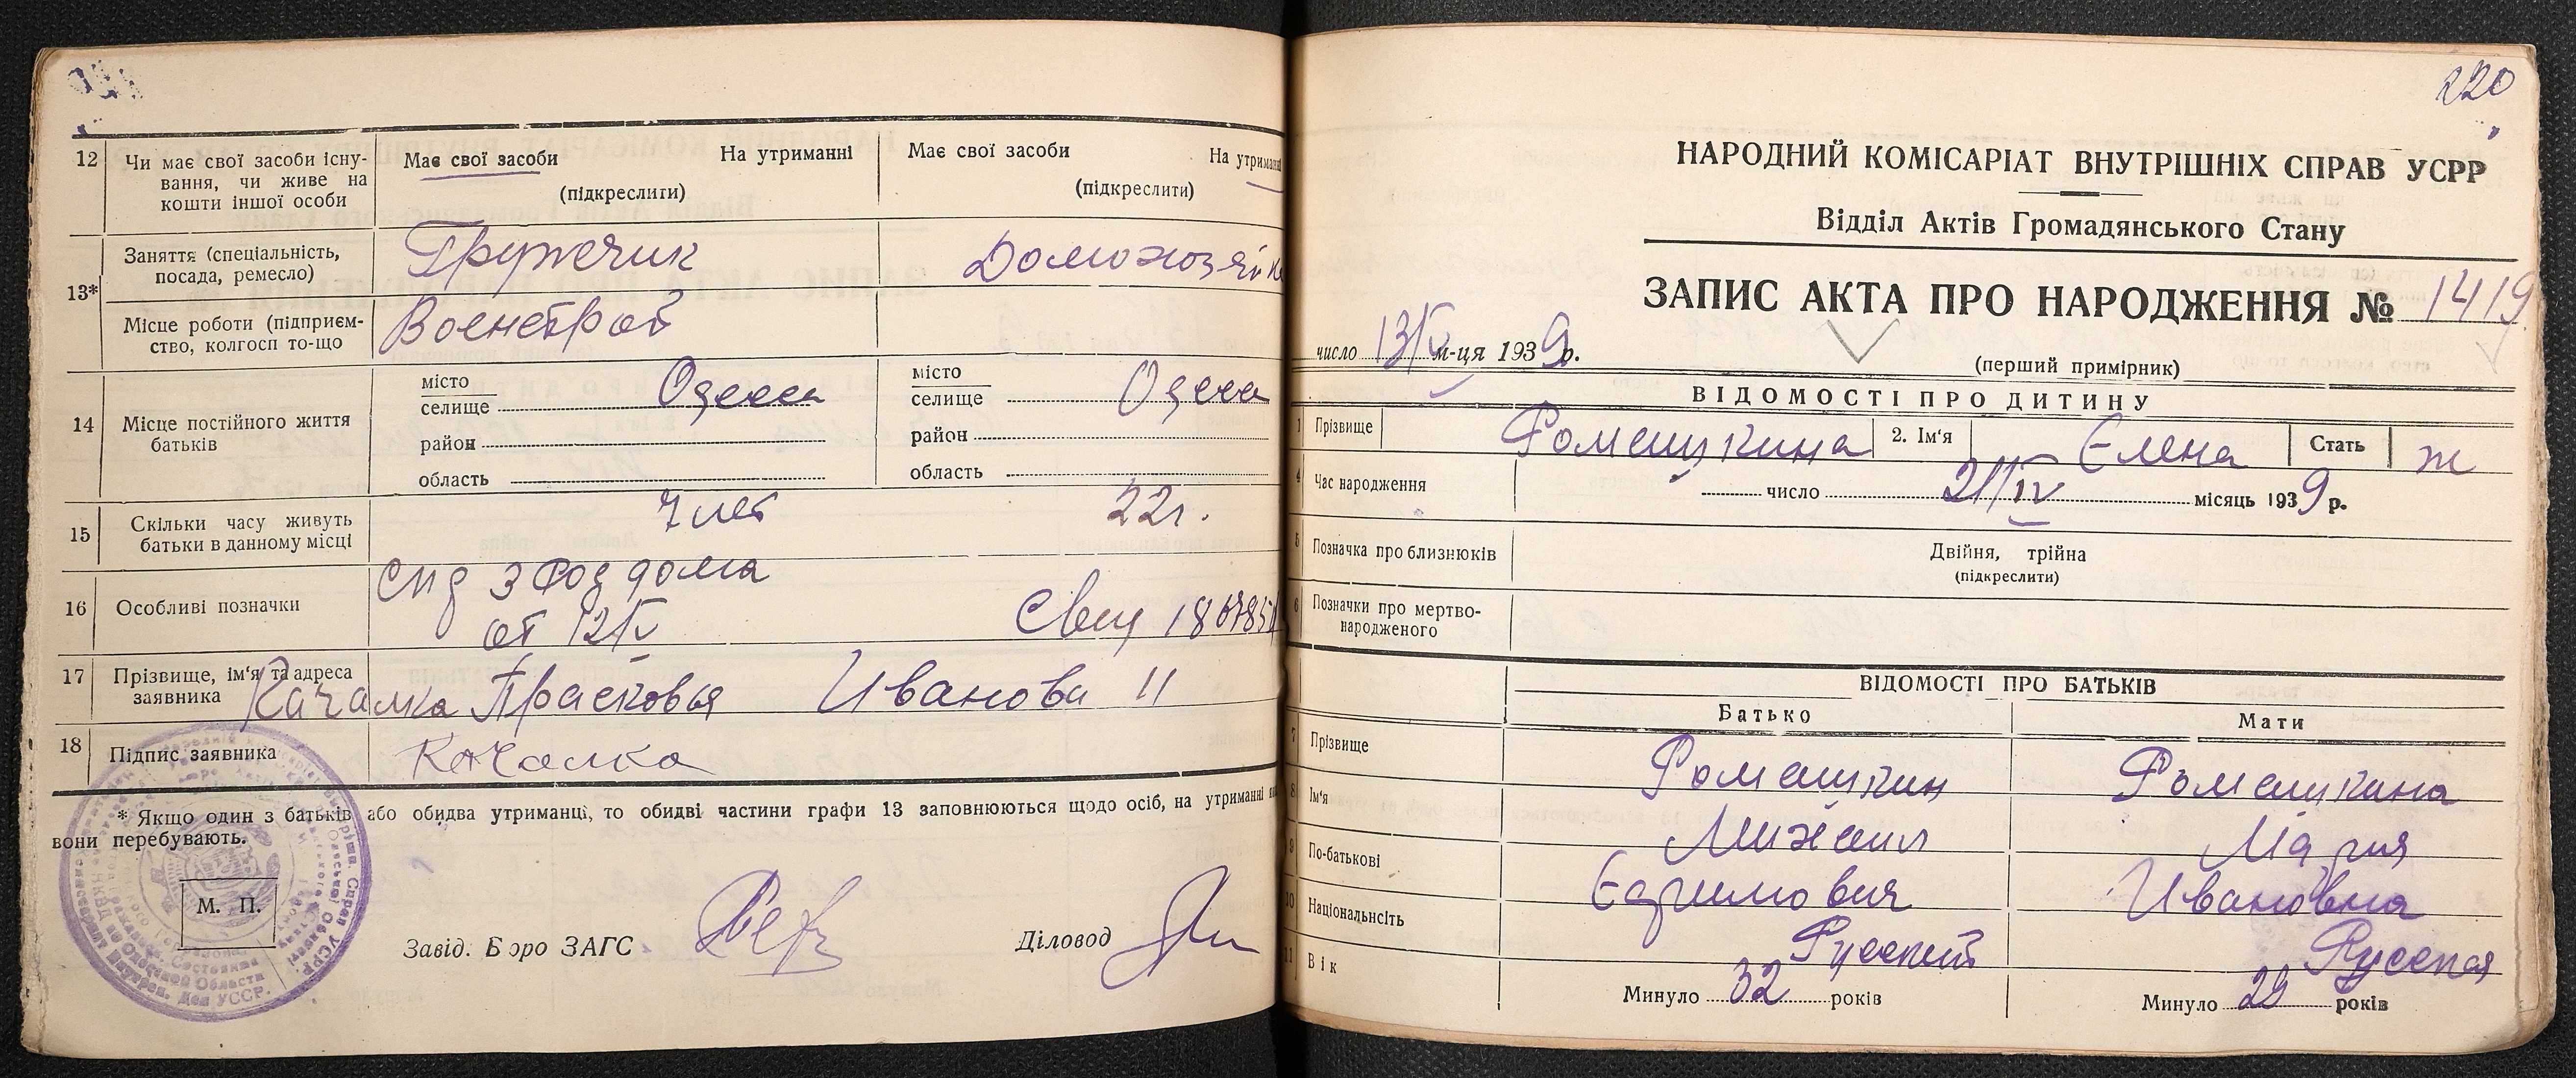 12
Чи має свої засоби існу-
вання, чи живе на
кошти іншої особи
Має свої засоби На утриманні
(підкреслити)
Має свої засоби На утриманні
(підкреслити)
13*
Заняття (спеціальність,
посада, ремесло)
Грузчик
Домохозяйка
Місце роботи (підприєм-
ство, колгосп то-що
Воен
14
Місце постійного життя
батьків
місто
селище Одесса
район
область
місто
селище Одесса
район
область
15
Скільки часу живуть
батьки в данному місці
7 лет
22 г.
16
Особливі позначки
спр 3 Род дома
от 12/V
17
Прізвище, ім'я та адреса
заявника
Качалка Прасковья Иванова 11
18
Підпис заявника
Качалка
* Якщо один з батьків або обидва утриманці, то обидві частини графи 13 заповнюються щодо осіб, на утриманні
вони перебувають.
М. П.
Завід. Бюро ЗАГС
Діловод
220
НАРОДНИЙ КОМІСАРІАТ ВНУТРІШНІХ СПРАВ УСРР
Відділ Актів Громадянського Стану
ЗАПИС АКТА ПРО НАРОДЖЕННЯ № 1419
число 13/V м-ця 1939 р.
(перший примірник)
ВІДОМОСТІ ПРО ДИТИНУ
1 Прізвище Ромашкина 2. Ім'я Елена Стать ж
4 Час народження число 21/IV місяць 1939 р.
5 Позначка про близнюків Двійня, трійна
(підкреслити)
6 Позначки про мертво-
народженого
ВІДОМОСТІ ПРО БАТЬКІВ
Батько Мати
7 Прізвище Ромашкин Ромашкина
8 Ім'я Михаил Мария
9 По-батькові Ефимович Ивановна
10 Національність Русский Русская
11 Вік Минуло 32 років Минуло 29 років